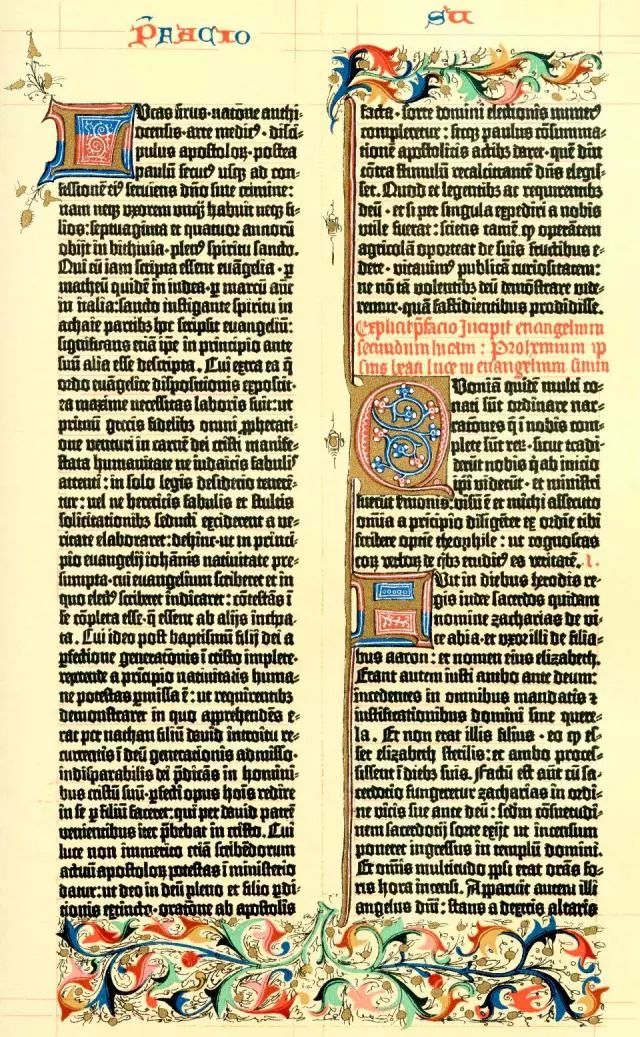 P̄FACIO
SU
LUcas sirus· natōne anthi-
ocensis· arte medic⁹· disci-
pulus apostoloꝝ· postea
paulū secut⁹ usqꝫ ad con-
fessionē ei⁹ serviens dn̄o sine crimine:
nam neqꝫ uxorem unqꝫ habuit neqꝫ fi-
lios: septuaginta et quatuor annorū
obijt in bithinia· plen⁹ spiritu sancto.
Qui cū iam scripta essent evāgelia· ꝑ
matheū quidē in iudea· ꝑ marcū aūt
in italia: sancto instigante spiritu in
achaie partibꝫ hoc scripsit evangeliū:
significans etiā ipē in principio ante
suū alia esse descripta. Cui extra ea q̄
ordo evāgelice dispositionis exposcit·
ea maxime necessitas laboris fuit: ut
primū grecis fidelibꝫ omni ꝓphetati-
one venturi in carnē dei cristi manife-
stata humanitate ne iudaicis fabulis
attenti: in solo legis desiderio tenerē-
tur: vel ne hereticis fabulis et stultis
solicitationibꝫ seducti exciderent a ve-
ritate elaboraret: dehinc· ut in princi-
pio evangelij iohānis nativitate pre-
sumpta· cui evangelium scriberet et in
quo elect⁹ scriberet indicaret: cōtestās ī
se cōpleta esse· q̄ essent ab alijs incepa-
ta. Cui ideo post baptismū filij dei a
ꝑfectione generatōnis ī cristo implete·
repetende a principio nativitatis huma-
ne potestas ꝑmissa ē: ut requirentibꝫ
demonstraret in quo apprehendēs e-
rat per nathan filiū david introitu re-
currentis ī deū generationis admisso·
indisparabilis dei p̄dicās in homini-
bus cristū suū· ꝑfecti opus hoīs redire
in se ꝑ filiū faceret: qui per david patrē
venientibus iter p̄bebat in cristo. Cui
luce non immerito etiā scribēdorum
actuū apostoloꝝ potestas ī ministerio
datur: ut deo in deū pleno et filio ꝓdi-
tionis extincto· oratōne ab apostolis
facta· sorte domini electionis numer⁹
completetur: sicqꝫ paulus cōsumma-
tionē apostolicis actibꝫ daret· quē diu
cōtra stimulū recalcitrantē dn̄s elegis-
set. Quod et legentibꝫ ac requirentibꝫ
deū· et si per singula expediri a nobis
utile fuerat: sciens tamē qꝫ operātem
agricolā oporteat de suis fructibus e-
dere· vitavim⁹ publicā curiositatem:
ne nō tā volentibꝫ deū demōstrare vide-
remur· quā fastidientibus prodidisse.
Explicit p̄facio Incipit evangelium
secundum lucam: Prohemium ip-
sius beati luce in evangelium suum
QUoniā quidē multi co-
nati sūt ordinare nar-
rationes q̄ ī nobis com-
plete sūt reꝝ· sicut tradi-
derūt nobis q̄ ab inicio
ipī viderūt· et ministri
fuerūt sermonis: visū ē et michi assecuto
omīa a pricipio diligēter ex ordīe tibi
scribere optīe theophile: ut cognoscas
eoꝝ verboꝝ de qꝫbꝫ erudit⁹ es veritatē. I.
FUit in diebus herodis re-
gis iudee sacerdos quidam
nomine zacharias de vi-
ce abia· et uxor illi de filia-
bus aaron: et nomen eius elizabeth.
Erant autem iusti ambo ante deum:
incedentes in omnibus mandatis ⁊
iustificationibus domini sine quere-
la. Et non erat illis filius· eo qꝫ es-
set elizabeth sterilis: et ambo proces-
sissent ī diebꝫ suis. Factū est aūt cū sa-
cerdotio fungeretur zacharias in ordi-
ne vicis sue ante deū: scdm cōsuetudi-
nem sacerdotij sorte exijt ut incensum
poneret ingressus in templū domini.
Et omīs multitudo ppli erat orās fo-
ris hora incensi. Apparuit autem illi
angelus dn̄i: stans a dextris altaris